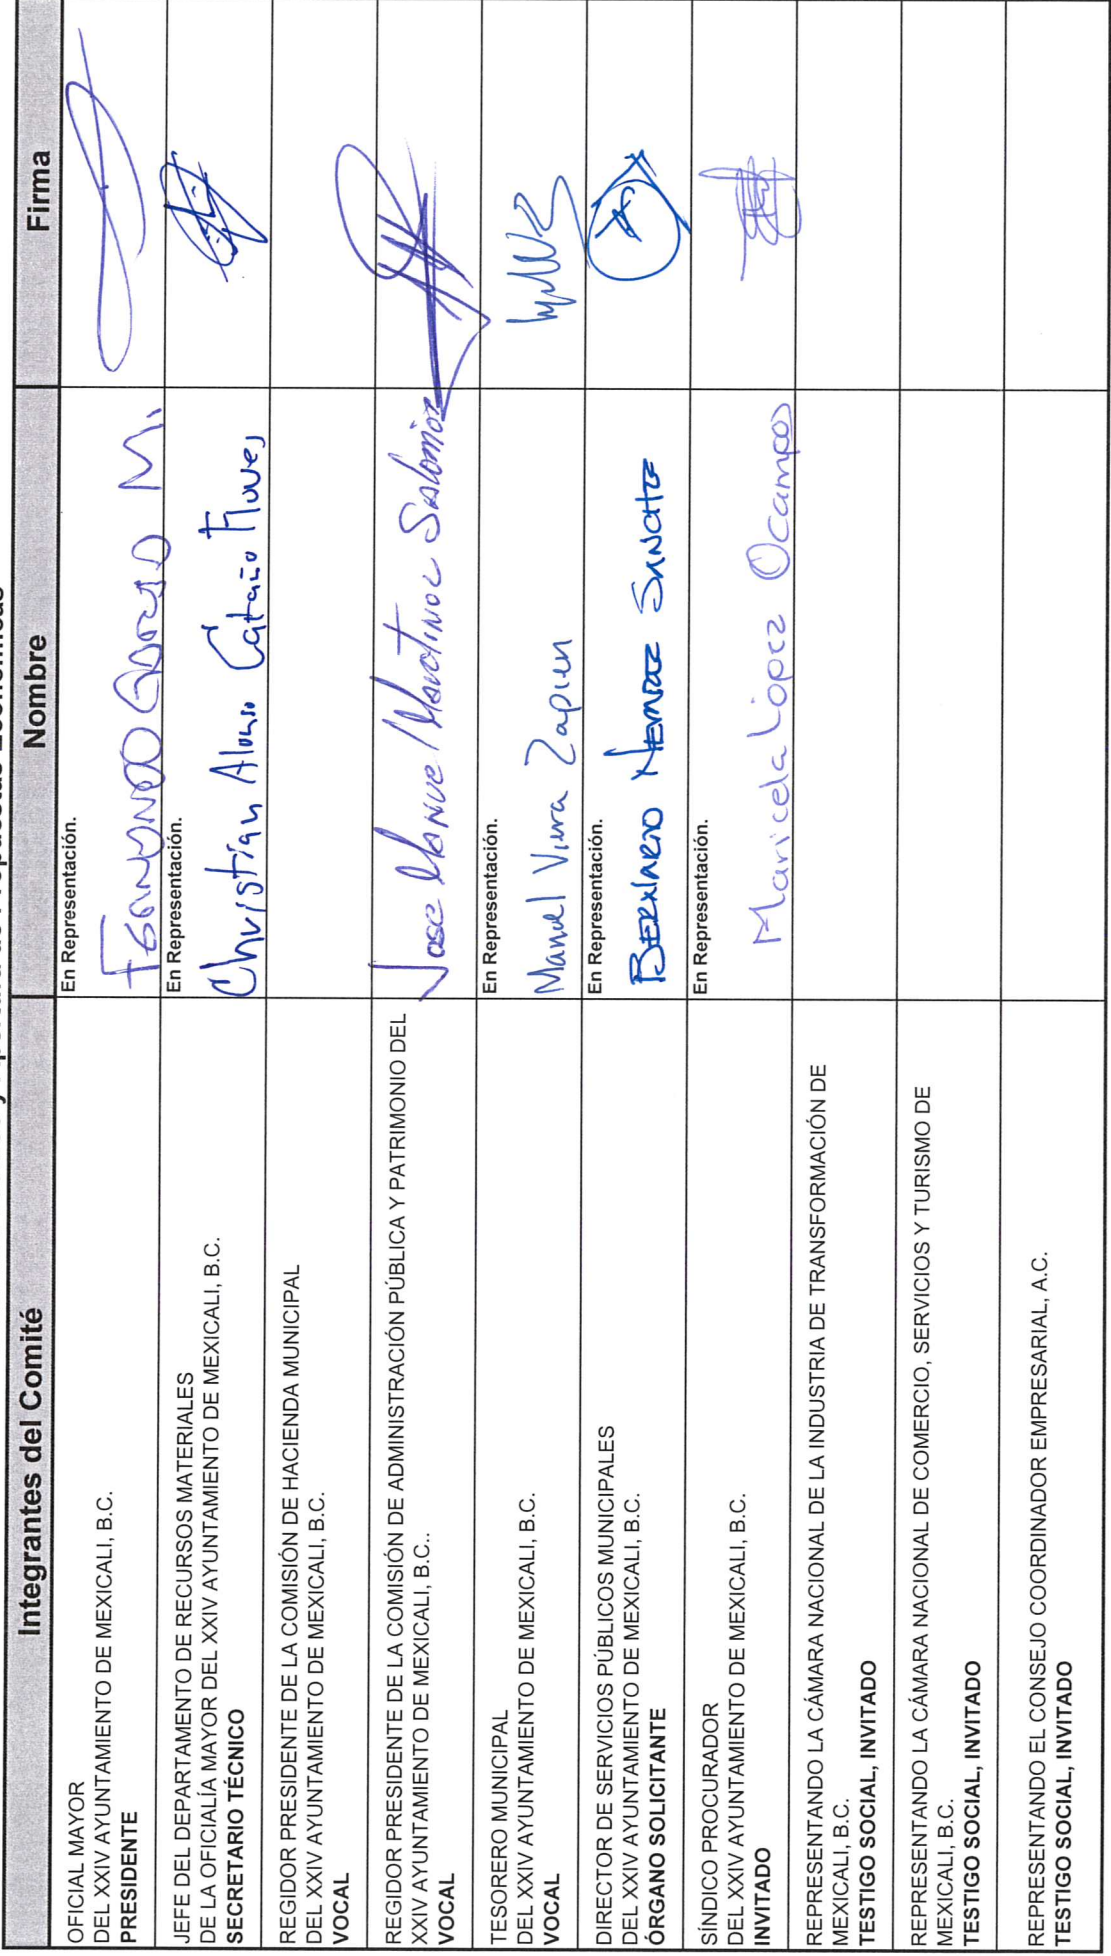 Integrantes del Comité
Nombre
Firma
OFICIAL MAYOR
DEL XXIV AYUNTAMIENTO DE MEXICALI, B.C.
PRESIDENTE
En Representación.
JEFE DEL DEPARTAMENTO DE RECURSOS MATERIALES
DE LA OFICIALÍA MAYOR DEL XXIV AYUNTAMIENTO DE MEXICALI, B.C.
SECRETARIO TÉCNICO
En Representación.
Christian Alonso Cataño
REGIDOR PRESIDENTE DE LA COMISIÓN DE HACIENDA MUNICIPAL
DEL XXIV AYUNTAMIENTO DE MEXICALI, B.C.
VOCAL
REGIDOR PRESIDENTE DE LA COMISIÓN DE ADMINISTRACIÓN PÚBLICA Y PATRIMONIO DEL
XXIV AYUNTAMIENTO DE MEXICALI, B.C..
VOCAL
Jose Manuel Martinez
TESORERO MUNICIPAL
DEL XXIV AYUNTAMIENTO DE MEXICALI, B.C.
VOCAL
En Representación.
Manuel Zapien
DIRECTOR DE SERVICIOS PÚBLICOS MUNICIPALES
DEL XXIV AYUNTAMIENTO DE MEXICALI, B.C.
ÓRGANO SOLICITANTE
En Representación.
SÍNDICO PROCURADOR
DEL XXIV AYUNTAMIENTO DE MEXICALI, B.C.
INVITADO
En Representación.
Maricela López Ocampo
REPRESENTANDO LA CÁMARA NACIONAL DE LA INDUSTRIA DE TRANSFORMACIÓN DE
MEXICALI, B.C.
TESTIGO SOCIAL, INVITADO
REPRESENTANDO LA CÁMARA NACIONAL DE COMERCIO, SERVICIOS Y TURISMO DE
MEXICALI, B.C.
TESTIGO SOCIAL, INVITADO
REPRESENTANDO EL CONSEJO COORDINADOR EMPRESARIAL, A.C.
TESTIGO SOCIAL, INVITADO